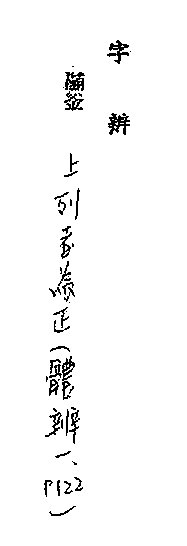 字辨
上列書為正(體辨一、P122)